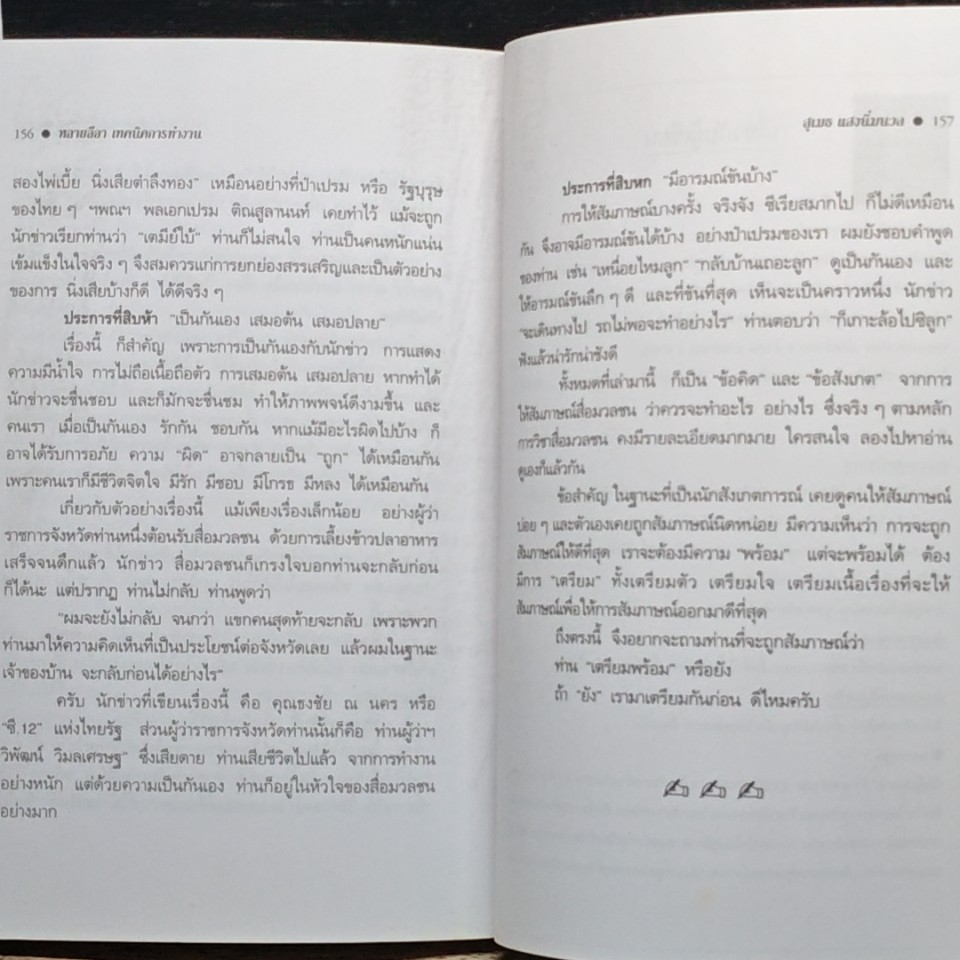 156 ● หลายลีลา เทคนิคการทำงาน
สองไพ่เบี้ย นิ่งเสียตำลึงทอง" เหมือนอย่างที่ป๋าเปรม หรือ รัฐบุรุษ
ของไทย ๆ ฯพณฯ พลเอกเปรม ติณสูลานนท์ เคยทำไว้ แม้จะถูก
นักข่าวเรียกท่านว่า "เตมีย์ใบ้" ท่านก็ไม่สนใจ ท่านเป็นคนหนักแน่น
เข้มแข็งในใจจริง ๆ จึงสมควรแก่การยกย่องสรรเสริญและเป็นตัวอย่าง
ของการ นิ่งเสียบ้างก็ดี ได้ดีจริง ๆ
ประการที่สิบห้า "เป็นกันเอง เสมอต้น เสมอปลาย"
เรื่องนี้ ก็สำคัญ เพราะการเป็นกันเองกับนักข่าว การแสดง
ความมีน้ำใจ การไม่ถือเนื้อถือตัว การเสมอต้น เสมอปลาย หากทำได้
นักข่าวจะชื่นชอบ และก็มักจะชื่นชม ทำให้ภาพพจน์ดีงามขึ้น และ
คนเรา เมื่อเป็นกันเอง รักกัน ชอบกัน หากแม้มีอะไรผิดไปบ้าง ก็
อาจได้รับการอภัย ความ "ผิด" อาจกลายเป็น "ถูก" ได้เหมือนกัน
เพราะคนเราก็มีชีวิตจิตใจ มีรัก มีชอบ มีโกรธ มีหลง ได้เหมือนกัน
เกี่ยวกับตัวอย่างเรื่องนี้ แม้เพียงเรื่องเล็กน้อย อย่างผู้ว่า
ราชการจังหวัดท่านหนึ่งต้อนรับสื่อมวลชน ด้วยการเลี้ยงข้าวปลาอาหาร
เสร็จจนดึกแล้ว นักข่าว สื่อมวลชนก็เกรงใจบอกท่านจะกลับก่อน
ก็ได้นะ แต่ปรากฏ ท่านไม่กลับ ท่านพูดว่า
"ผมจะยังไม่กลับ จนกว่า แขกคนสุดท้ายจะกลับ เพราะพวก
ท่านมาให้ความคิดเห็นที่เป็นประโยชน์ต่อจังหวัดเลย แล้วผมในฐานะ
เจ้าของบ้าน จะกลับก่อนได้อย่างไร"
ครับ นักข่าวที่เขียนเรื่องนี้ คือ คุณธงชัย ณ นคร หรือ
"ซี.12" แห่งไทยรัฐ ส่วนผู้ว่าราชการจังหวัดท่านนั้นก็คือ ท่านผู้ว่าฯ
วิพัฒน์ วิมลเศรษฐ" ซึ่งเสียดาย ท่านเสียชีวิตไปแล้ว จากการทำงาน
อย่างหนัก แต่ด้วยความเป็นกันเอง ท่านก็อยู่ในหัวใจของสื่อมวลชน
อย่างมาก
สุเมธ แสงนิ่มนวล ● 157
ประการที่สิบหก "มีอารมณ์ขันบ้าง"
การให้สัมภาษณ์บางครั้ง จริงจัง ซีเรียสมากไป ก็ไม่ดีเหมือน
กัน จึงอาจมีอารมณ์ขันได้บ้าง อย่างป๋าเปรมของเรา ผมยังชอบคำพูด
ของท่าน เช่น "เหนื่อยไหมลูก" "กลับบ้านเถอะลูก" ดูเป็นกันเอง และ
ให้อารมณ์ขันลึก ๆ ดี และที่ขันที่สุด เห็นจะเป็นคราวหนึ่ง นักข่าว
"จะเดินทางไป รถไม่พอจะทำอย่างไร" ท่านตอบว่า "ก็เกาะล้อไปซิลูก"
ฟังแล้วน่ารักน่าชังดี
ทั้งหมดที่เล่ามานี้ ก็เป็น "ข้อคิด" และ "ข้อสังเกต" จากการ
ให้สัมภาษณ์สื่อมวลชน ว่าควรจะทำอะไร อย่างไร ซึ่งจริง ๆ ตามหลัก
การวิชาสื่อมวลชน คงมีรายละเอียดมากมาย ใครสนใจ ลองไปหาอ่าน
ดูเองก็แล้วกัน
ข้อสำคัญ ในฐานะที่เป็นนักสังเกตการณ์ เคยดูคนให้สัมภาษณ์
บ่อย ๆ และตัวเองเคยถูกสัมภาษณ์นิดหน่อย มีความเห็นว่า การจะถูก
สัมภาษณ์ให้ดีที่สุด เราจะต้องมีความ "พร้อม" แต่จะพร้อมได้ ต้อง
มีการ "เตรียม" ทั้งเตรียมตัว เตรียมใจ เตรียมเนื้อเรื่องที่จะให้
สัมภาษณ์เพื่อให้การสัมภาษณ์ออกมาดีที่สุด
ถึงตรงนี้ จึงอยากจะถามท่านที่จะถูกสัมภาษณ์ว่า
ท่าน "เตรียมพร้อม" หรือยัง
ถ้า "ยัง" เรามาเตรียมกันก่อน ดีไหมครับ